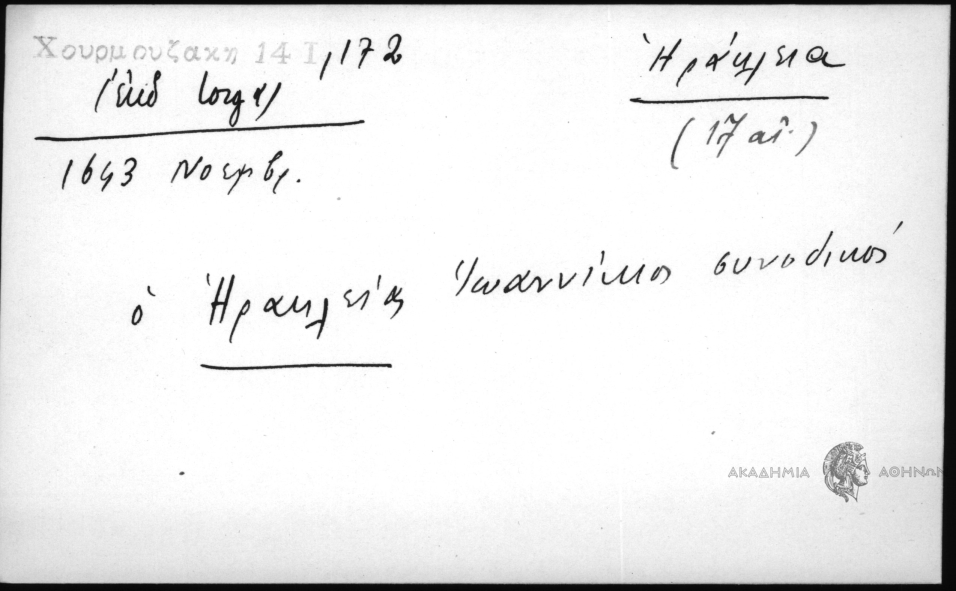 Χουρμουζακη 14 Ι, 172
Ἡράκλεια
(ἐκδ Ιοrga)
(17 αἰ.)
1643 Νοεμβρ.
ὁ Ἡρακλείας Ἰωαννίκιος συνοδικός
ΑΚΑΔΗΜΙΑ ΑΘΗΝΩΝ